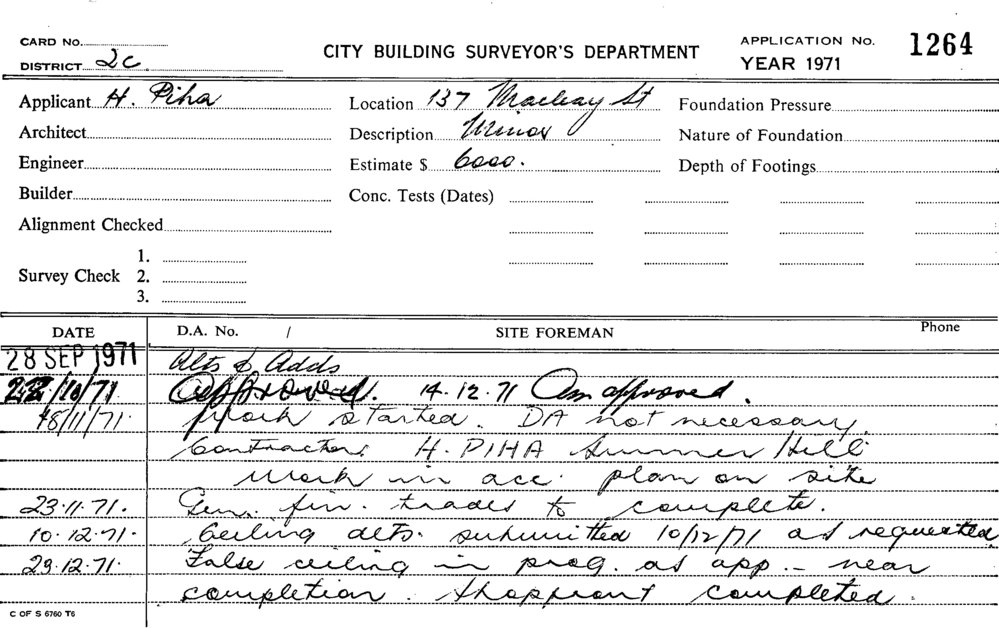 CARD No.
DISTRICT 2c
CITY BUILDING SURVEYOR'S DEPARTMENT
APPLICATION No. 1264
YEAR 1971
Applicant H. Piha
Location 137 Macleay St
Foundation Pressure
Architect
Description Minor
Nature of Foundation
Engineer
Estimate $ 6000.
Depth of Footings
Builder
Conc. Tests (Dates)
Alignment Checked
Survey Check 1.
2.
3.
DATE D.A. No. / SITE FOREMAN Phone
28 SEP 1971 Alts & Adds
22/10/71 Approved. 14.12.71 Am approved.
18/11/71. Work started. DA not necessary.
Contractor, H. PIHA Summer Hill
work in acc. plan on site
23.11.71. Gen. fin. trades to complete.
10.12.71. Ceiling dets. submitted 10/12/71 as requested
23.12.71. False ceiling in prog. as app. - near
completion. Shopfront completed.
C OF S 6760 T6